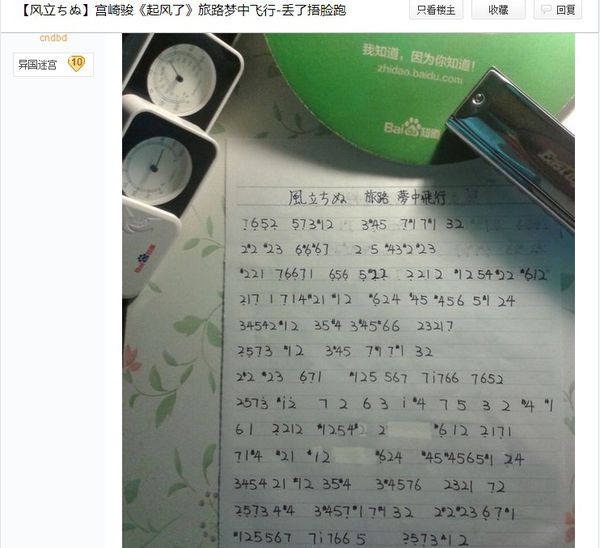 【风立ちぬ】宫崎骏《起风了》旅路梦中飞行-丢了捂脸跑
只看楼主
收藏
回复
cndbd
异国迷宫 10
我知道，因为你知道！
zhidao.baidu.com
Bai 知道
Bai
風立ちぬ 旅路 夢中飛行
7652 573#12 3#45 7#17#1 32
2#2 #23 6#6#67 2 5 #43#2#23
#221 76671 656 5#22 2212 #1254#22 #612
217 1 714#21 #12 #624 #45 #456 5#1 24
34542#12 35#4 3#45#66 23217
2573 #12 3#45 7#17#1 32
2#2 #23 671 #125 567 7i766 7652
2573 #i2 7 2 6 3 i #4 7 5 3 2 #4 #1
61 2212 #1254#2 2 #612 2171
71#4 #21 #12 #624 #45#4565#1 24
345421 #12 35#4 3#4576 2321 72
25734#4 3#457#17#132 2#2#2367#1
#125567 7i7665 2573#12